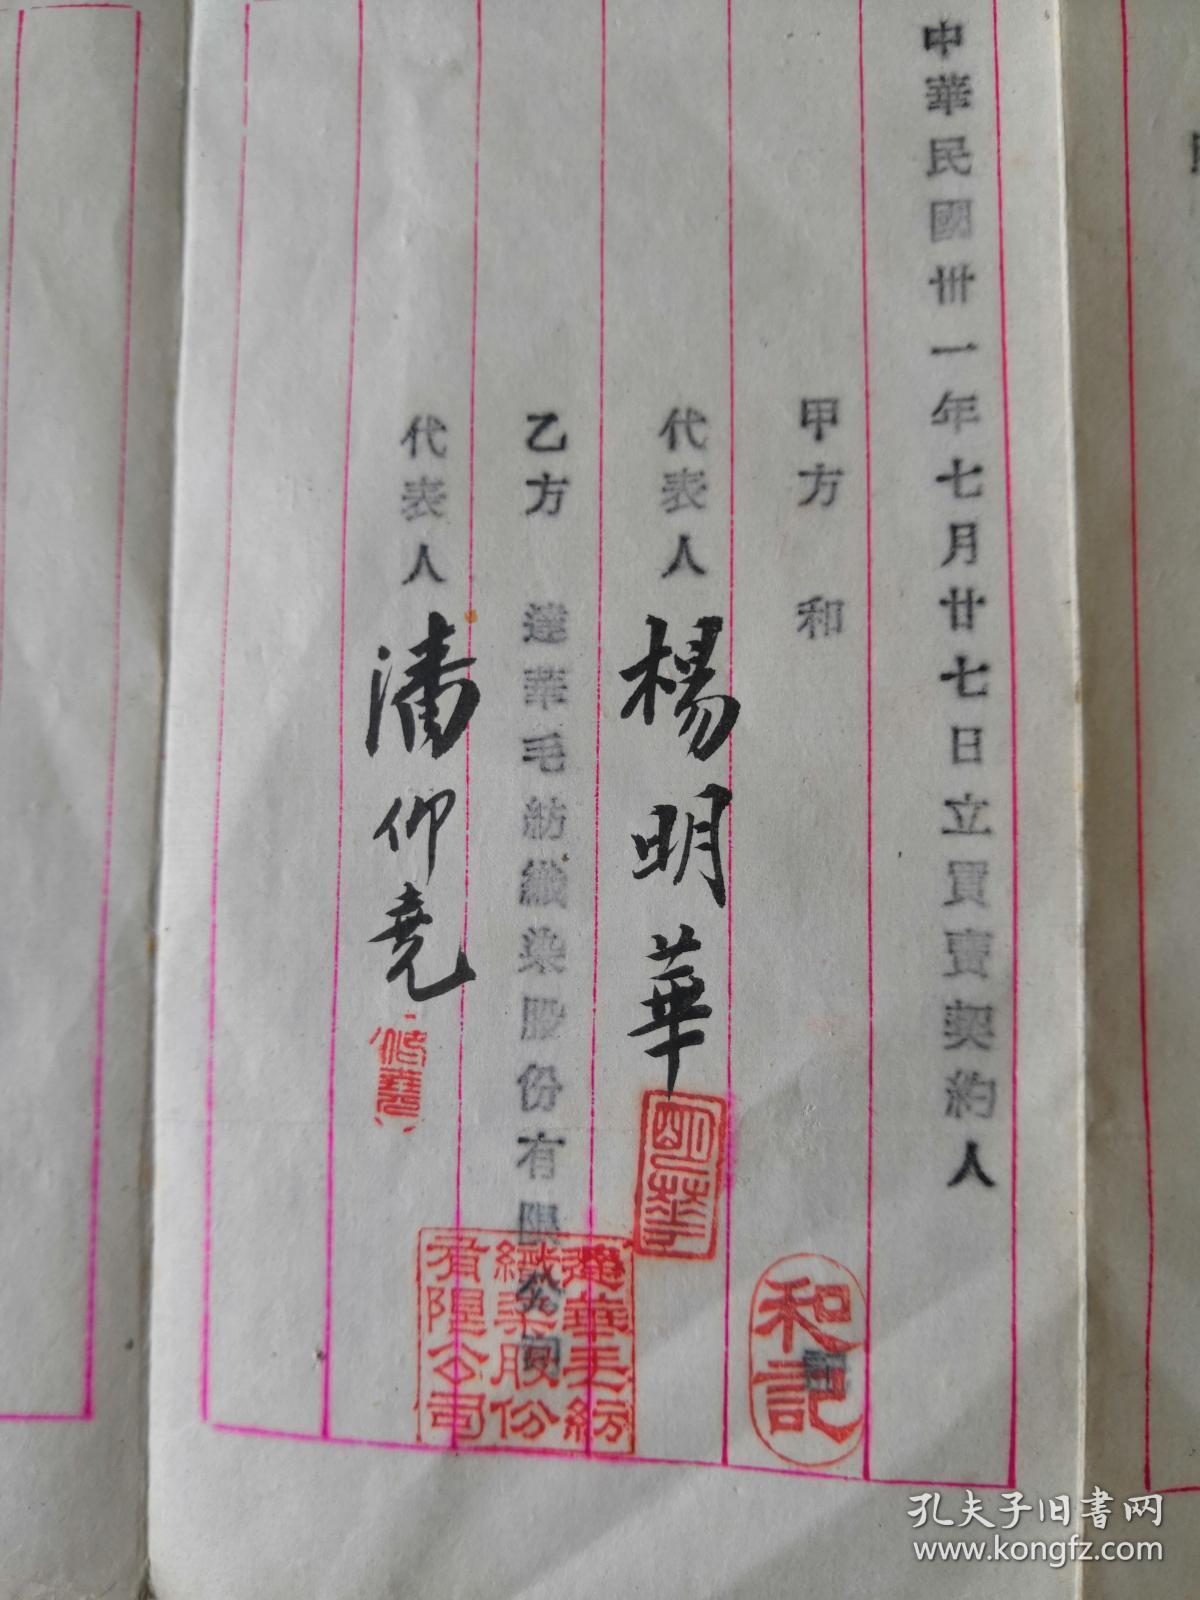 中華民國卅一年七月廿七日立買賣契約人
甲方 和記
代表人 楊明華
明華
和記
乙方 達華毛紡織染股份有限公司
代表人 潘仰堯
達華毛紡
織染股份
有限公司
孔夫子旧书网
www.kongfz.com